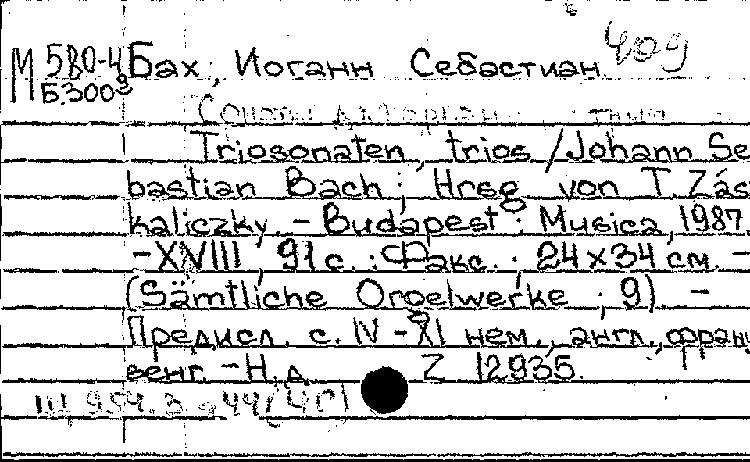 409
М 580-4 Бах, Иоганн Себастиан
Б.300
Сонаты
Triosonaten, trios / Johann Se
bastian Bach ; Hrsg. von T. Zás
kaliczky. - Budapest : Musica, 1987.
-XVIII, 91 с. : Факс. ; 24 x 34 см. -
(Sämtliche Orgelwerke ; 9) -
Предисл. с. IV - XI нем., англ., фран
венг. - Н.д. Z 12935.
Щ 954.3